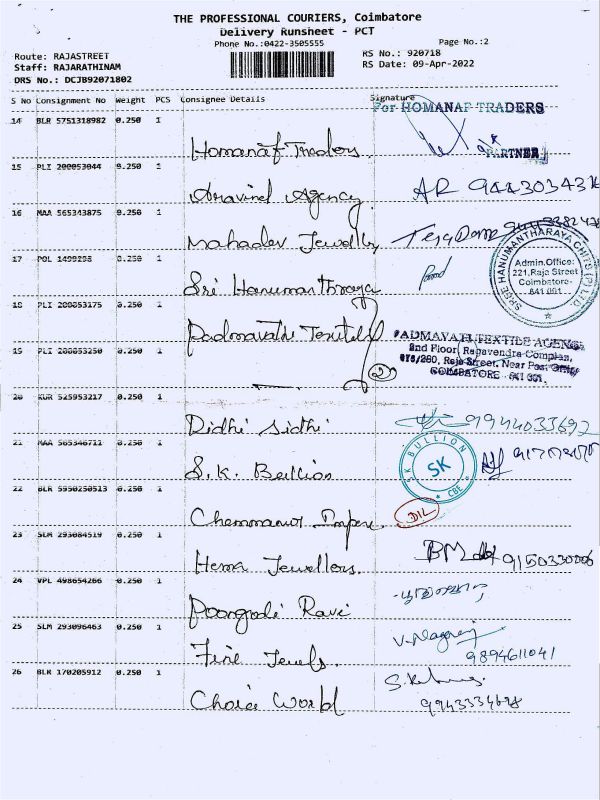 THE PROFESSIONAL COURIERS, Coimbatore
Delivery Runsheet - PCT
Phone No.:0422-3505555
Page No.:2
Route: RAJASTREET
RS No.: 920718
Staff: RAJARATHINAM
RS Date: 09-Apr-2022
DRS No.: DCJB92071802
S No Consignment No Weight PCS Consignee Details Signature
For HOMANAF TRADERS
14 BLR 5751318982 0.250 1
Homanaf Traders
PARTNER
15 PLI 200053044 0.250 1
Aravind Agency
AR
16 MAA 565343875 0.250 1
Mahadev Jewells
17 POL 1499298 0.250 1
Sri Hanumanthraya
SREE HANUMANTHARAYA CHITS (P) LTD
Admin.Office:
221,Raja Street
Coimbatore-
641 001.
18 PLI 200053175 0.250 1
Padmavathi Textiles
PADMAVATI TEXTILE AGENCY
2nd Floor, Ragavendra Complex,
Raja Street, Near Post Office
COIMBATORE - 641 001.
19 PLI 200053250 0.250 1
2
20 KUR 525953217 0.250 1
Ridhi Sidhi
9944033692
21 MAA 565346711 0.250 1
S.K. Bullion
SK BULLION
SK
CBE
22 BLR 5950250513 0.250 1
Chemmanur
DIL
23 SLM 293084519 0.250 1
Hema Jewellers.
BM
9150330006
24 VPL 498654266 0.250 1
Poongodi Ravi
25 SLM 293096463 0.250 1
Fine Jewels.
V. Nagaraj
9894611041
26 BLR 170205912 0.250 1
Choice World
9943334698